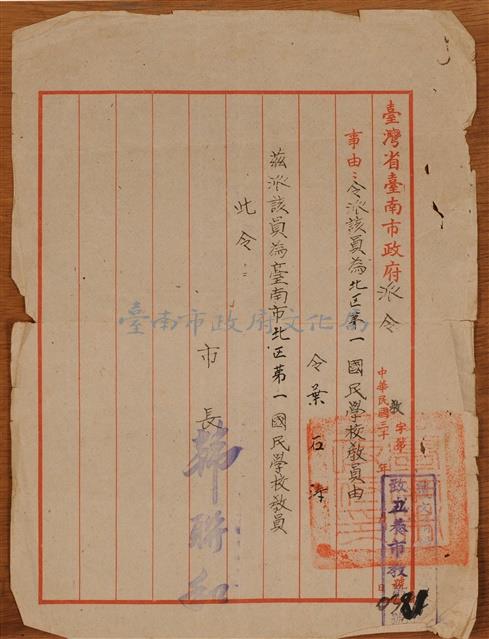 臺灣省臺南市政府派令
教字第
中華民國三十 年
日
政丑巷市教
事由:令派該員為北区第一國民學校教員由
令葉石濤
茲派該員為臺南市北区第一國民學校教員
此令:
市長
韓聯和
臺南市政府文化局